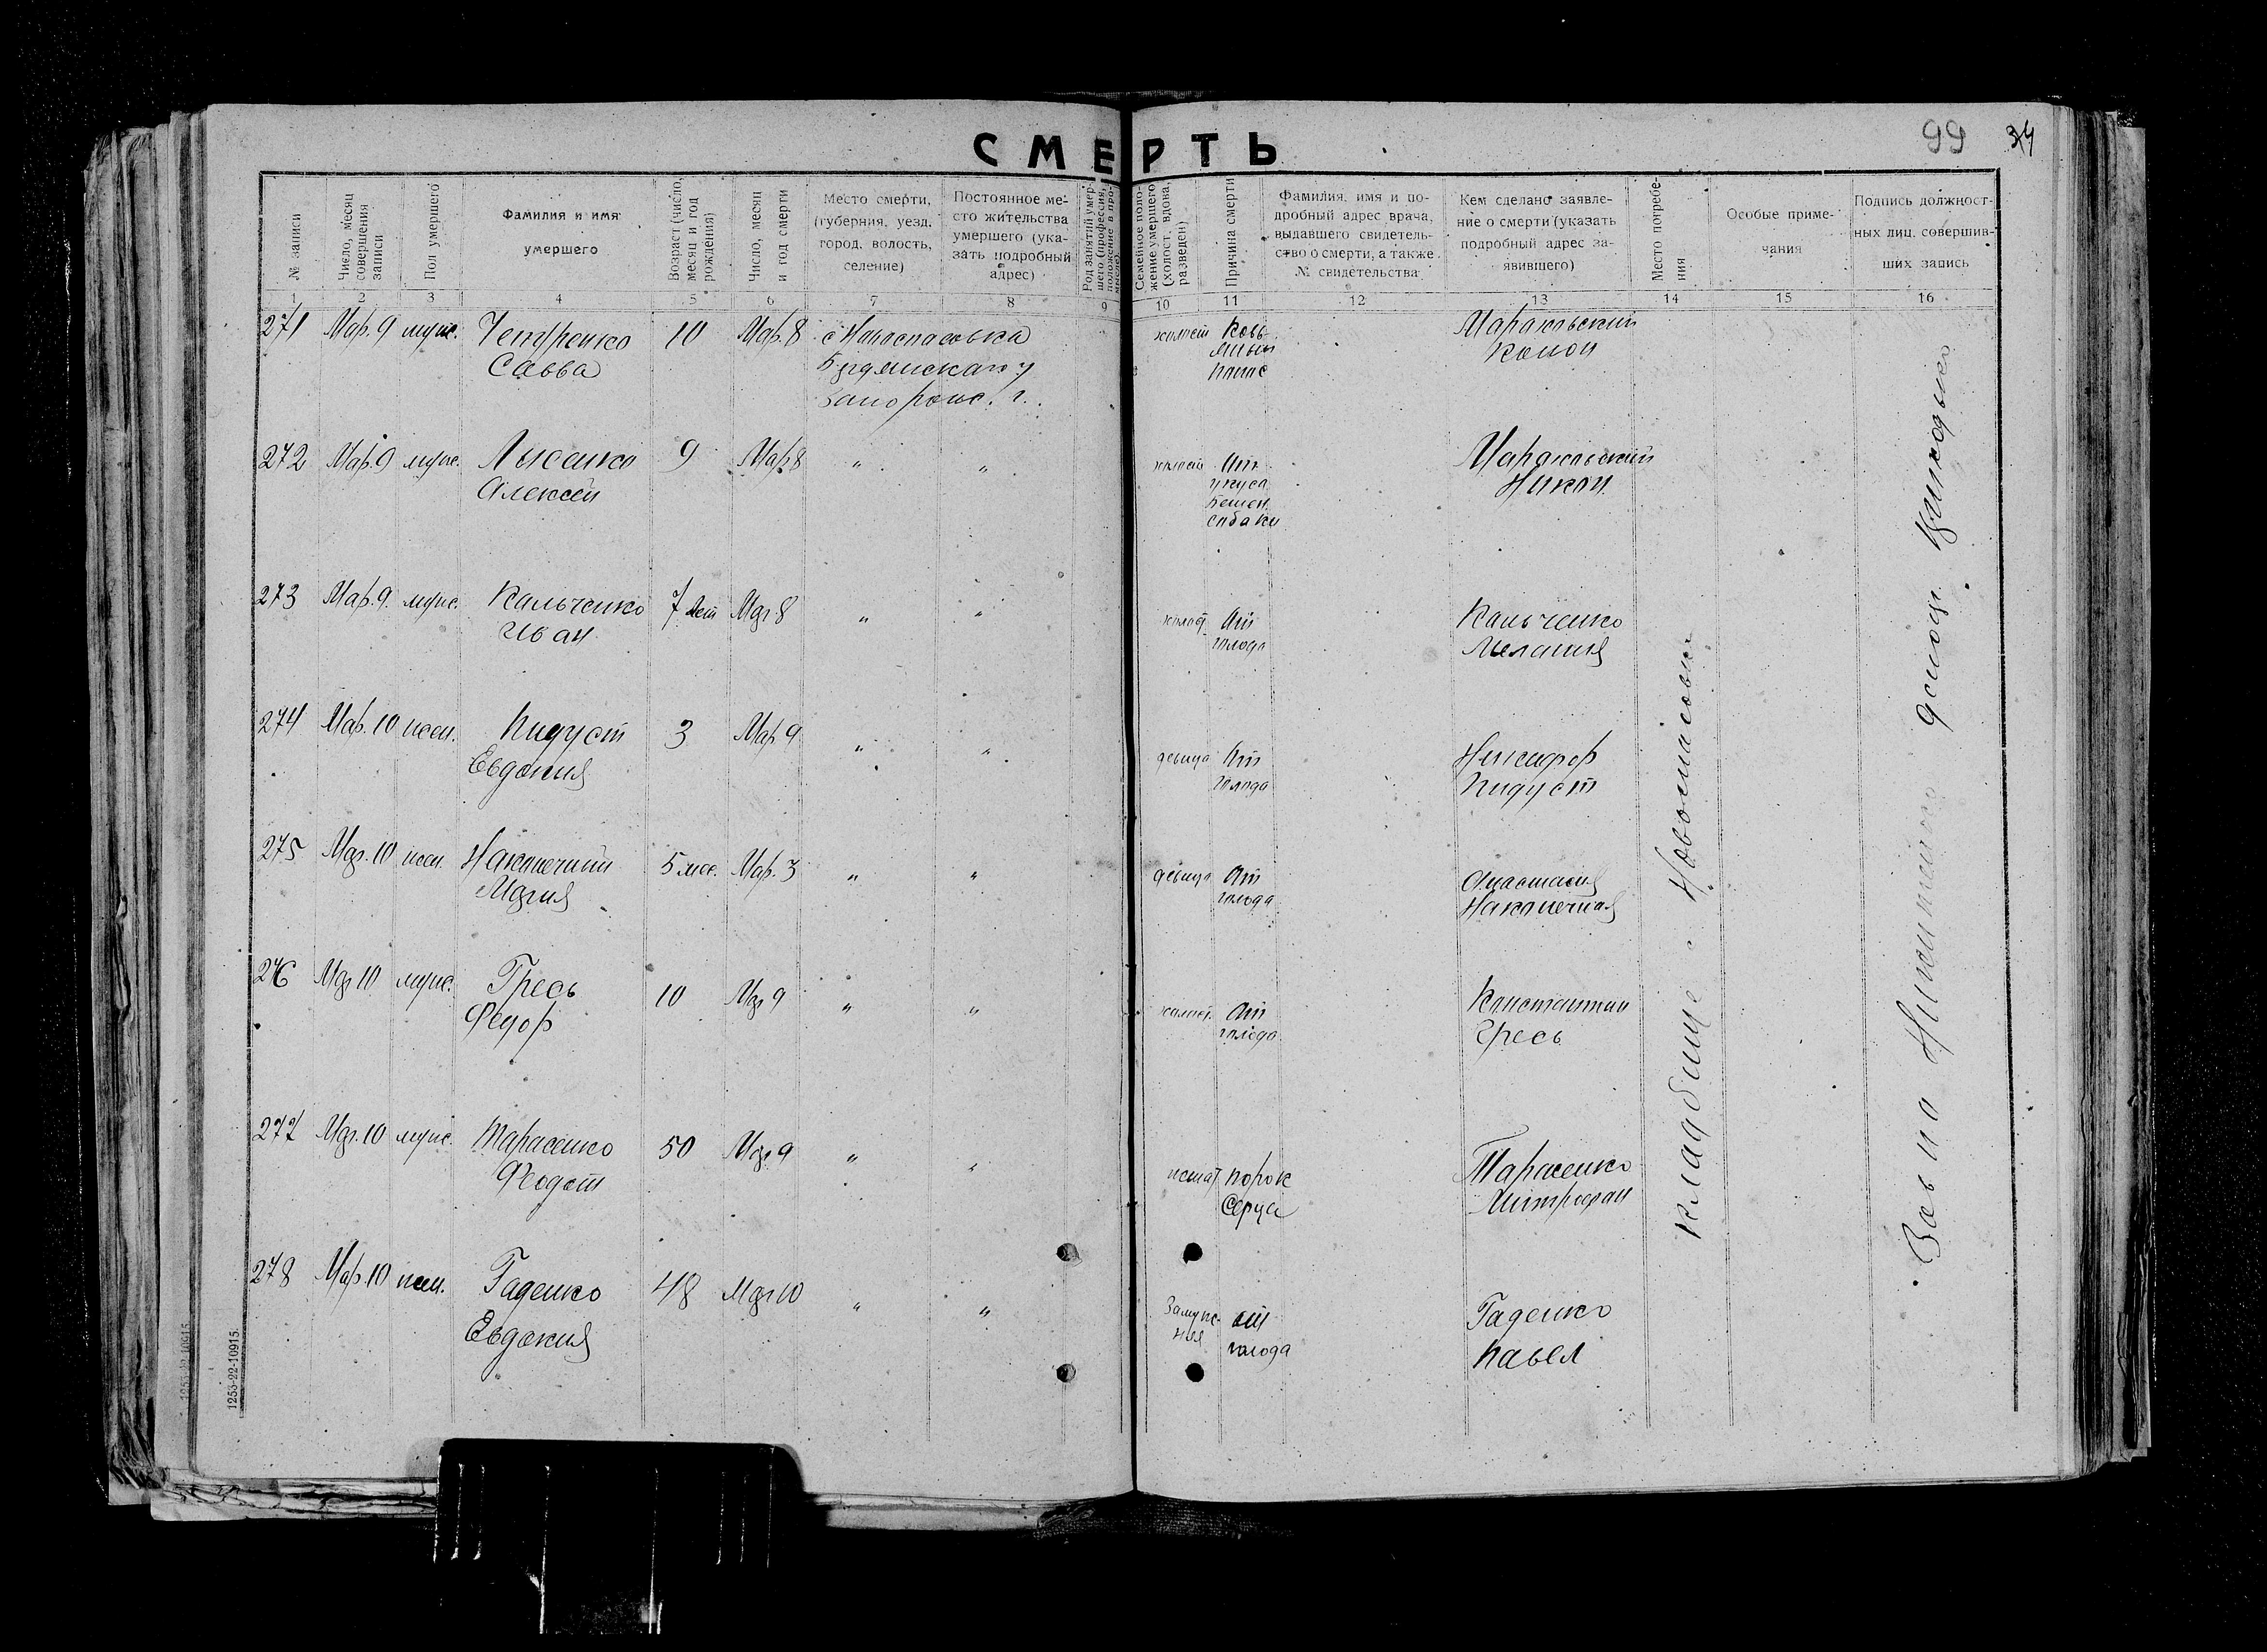 СМЕРТЬ
99 34
№ записи
Число, месяц совершения записи
Пол умершего
Фамилия и имя умершего
Возраст (число, месяц и год рождения)
Число, месяц и год смерти
Место смерти, (губерния, уезд, город, волость, селение)
Постоянное место жительства умершего (указать подробный адрес)
Род занятий умершего (профессия, положение в промысле)
Семейное положение умершего (холост, вдова, разведен)
Причина смерти
Фамилия, имя и подробный адрес врача, выдавшего свидетельство о смерти, а также № свидетельства
Кем сделано заявление о смерти (указать подробный адрес заявившего)
Место погребения
Особые примечания
Подпись должностных лиц, совершивших запись
1 2 3 4 5 6 7 8 9 10 11 12 13 14 15 16
271 Мар. 9 муж. Савва 10 Мар. 8 с Новоспасовка
Бердянского у
Запорож. г.
холост
Конон
272 Мар. 9 муж. Лысенко 9 Мар 8 " "
Алексей
холост От
укуса
бешен.
собаки
Никон
273 Мар. 9. муж. Кальченко 7 лет Мар 8 " "
Иван
холост От
голода
Кальченко
Мелания
274 Мар. 10 жен. Пидуст 3 Мар 9 " "
Евдокия
девица От
голода
Никифор
Пидуст
275 Мар. 10 жен. Наконечный 5 мес. Мар. 3 " "
Мария
девица От
голода
Анастасия
Наконечная
276 Мар 10 муж. Гресь 10 Мар 9 " "
Федор
холост От
голода
Константин
Гресь
277 Мар. 10 муж. Тарасенко 50 Мар. 9 " "
Феодот
женат порок
серца
Тарасенко
Митрофан
278 Мар. 10 жен. Гаденко 48 Мар 10 " "
Евдокия
Замужняя от
голода
Гаденко
Павел
Кладбище с Новоспасовки
1253-22-10915.